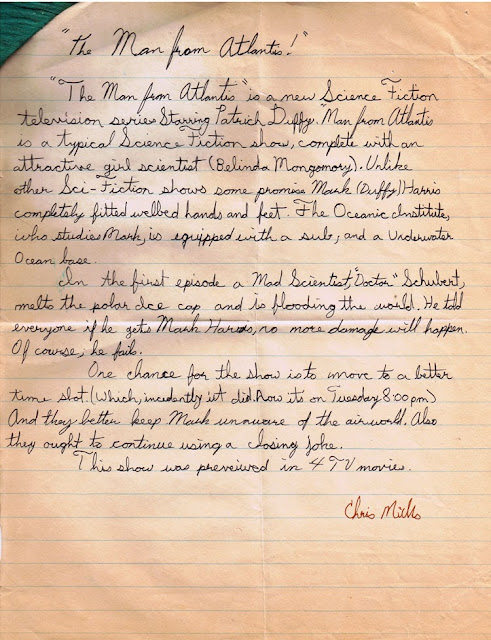 "The Man from Atlantis!"
"The Man from Atlantis" is a new Science Fiction
television series Starring Patrich Duffy. "Man from Atlantis
is a typical Science Fiction show, complete with an
attractive girl scientist (Belinda Mongomory). Unlike
other Sci-Fiction shows some promise Mark (Duffy) Harris
completely fitted webbed hands and feet. The Oceanic Institute,
who studies Mark, is equipped with a sub, and a Underwater
Ocean base.
In the first episode a Mad Scientist, "Doctor" Schubert,
melts the polar Ice cap and is flooding the world. He told
everyone if he gets Mark Harris, no more damage will happen.
Of course, he fails.
One chance for the show is to move to a better
time slot. (Which, incedently it did. Now its on Tuesday 8:00 pm)
And they better keep Mark unaware of the airworld. Also
they ought to continue using a closing joke.
This show was previewed in 4 TV movies.
Chris Mills